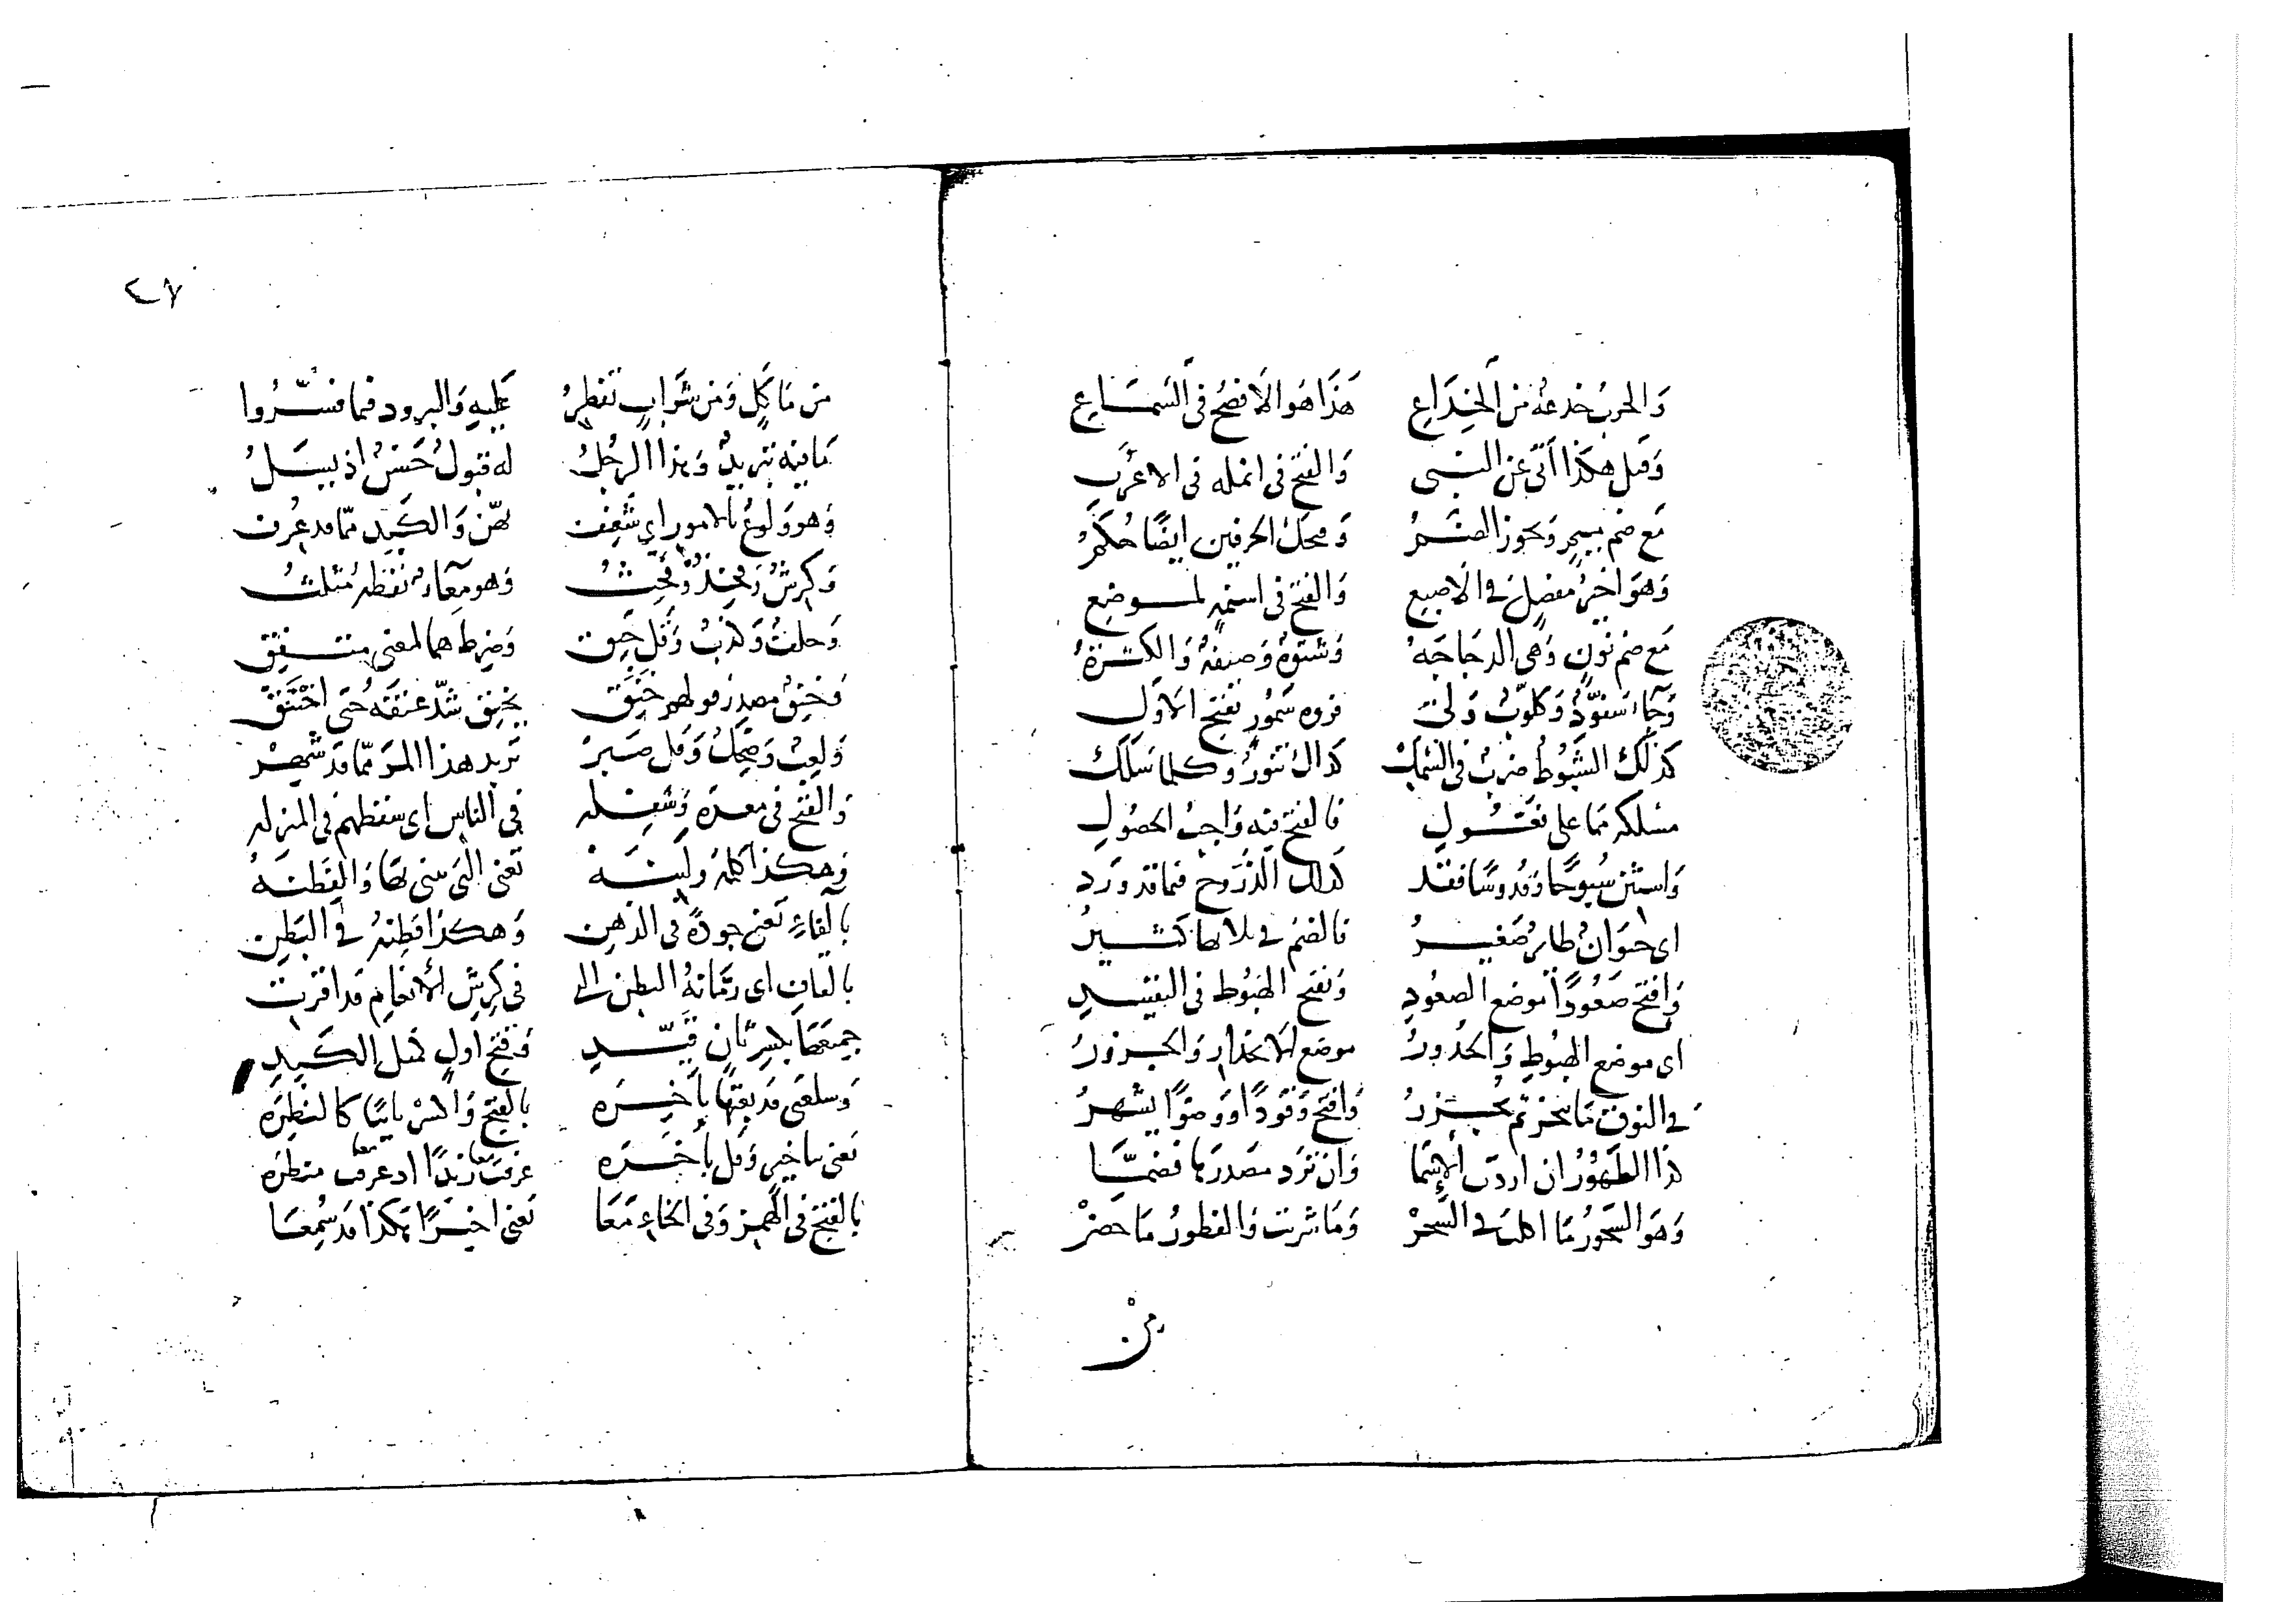 وَالحربُ خدعةٌ من الخِدَاعِ هَذَا هَو الاَفصَحُ في السَمَاعِ
وَقيل هكذا أتى عن النبي وَالفتح في انمله في الاعرَبِ
مَع ضم ميمٍ وَيجوز الضمُ وَ الحرفين ايضًا حُكمُ
وَهوَ اخيرُ مفصلٍ في الاصبع وَالفتح في اسنمةٍ لموضع
مَع ضم نونٍ وَهى الدجَاجَهْ وَشتوةٌ وَصيفةٌ وَالكثرَةُ
وَجَاءَ سَفّودٌ وَكلّوبٌ وَ فروه سَمُّور بفتح الاوّل
كذلك الشبّوط ضربٌ في السّمك كذاك تنّورٌ وكلما سَلَك
مسلكه مما على فَعّولِ فالفتح فيه وَاجبُ الحصُولِ
وَاستثن سُبّوحًا وَقُدوسًا فقد كذلك الذُرّوح فيما قد وَرَد
اى حيَوَانٌ طائرٌ صَغيرُ فالضم في كثيرُ
وَافتح صَعُودًا موضع الصعُودِ وَنفتح الهبُوط في التقييدِ
اى موضع الهبُوطِ وَالحدُورُ موضع الانحدار وَالجزورُ
في النوق مَا ينحر ثم يجزرُ وَافتح وَقودًا اووَضوًا يشهرُ
كذا الطَهُورُ ان اردت الاِسمَا وَان ترد مصدرَها فضمَّا
وَهوَ السَحورُ مَا اكلت في السَّحرْ وَمَا شربت وَالفطورُ مَا حَضرْ
من
٤٧
من مَاكلٍ وَمن شَرَابٍ تفطرُ عَليهِ وَالبرود فيما فسَّرُوا
مَا فيه تبريدٌ وَهذا الرجلُ له قبولٌ حَسَنٌ اذ يسَلُ
وَهو وَلوعٌ بالامور اي شَغِفْ بهنّ وَالكَبِدِ ممّا قد عُرِف
وَكرِشٌ وَفخِذٌ وَفحِثُ وَهو مِعَاءٌ
وَحلفٌ وَكذبٌ وَقل حَبِق وَضرِط هما لمعنى متفِق
وَخنِقٌ مصدرُ قولهم خَنَق يخنِق شدّ عنقَه حتى اختنَقْ
وَلعِبٌ وَضحِكٌ وَقل صَبِرْ تريد هذا المرَّ ممّا قد شُهِرْ
وَالفتح في معدة وَسَفِله في الناس اى سفطهم في المنزله
وَهكذا كلِمة وَلَبِنَه تَعنى التى تبنى بهَا وَالفَطِنَهْ
بالفاءِ تَعنى جودةً في الذهن وَهكذا قطِنة في البَطنِ
بالقاف اى رمّانة البطن الى في كَرِش الأنعَامِ قد اقرنت
جميعهَا بكسر ثانٍ قيِّدِ وَفتح اولٍ كمثل الكَبِدِ
وَسلعتى قد بعتها بأخِرَه بالفتح وَالكسرْ ثانيًا كالنظِرَه
تعنى بتاخيرٍ وَقل بأخَرَه عرفت زيدًا
معًا
بالفتح في الهمز وَفي الخاءِ مَعَا تَعنى اخيرًا هَكذا قد سُمِعَا